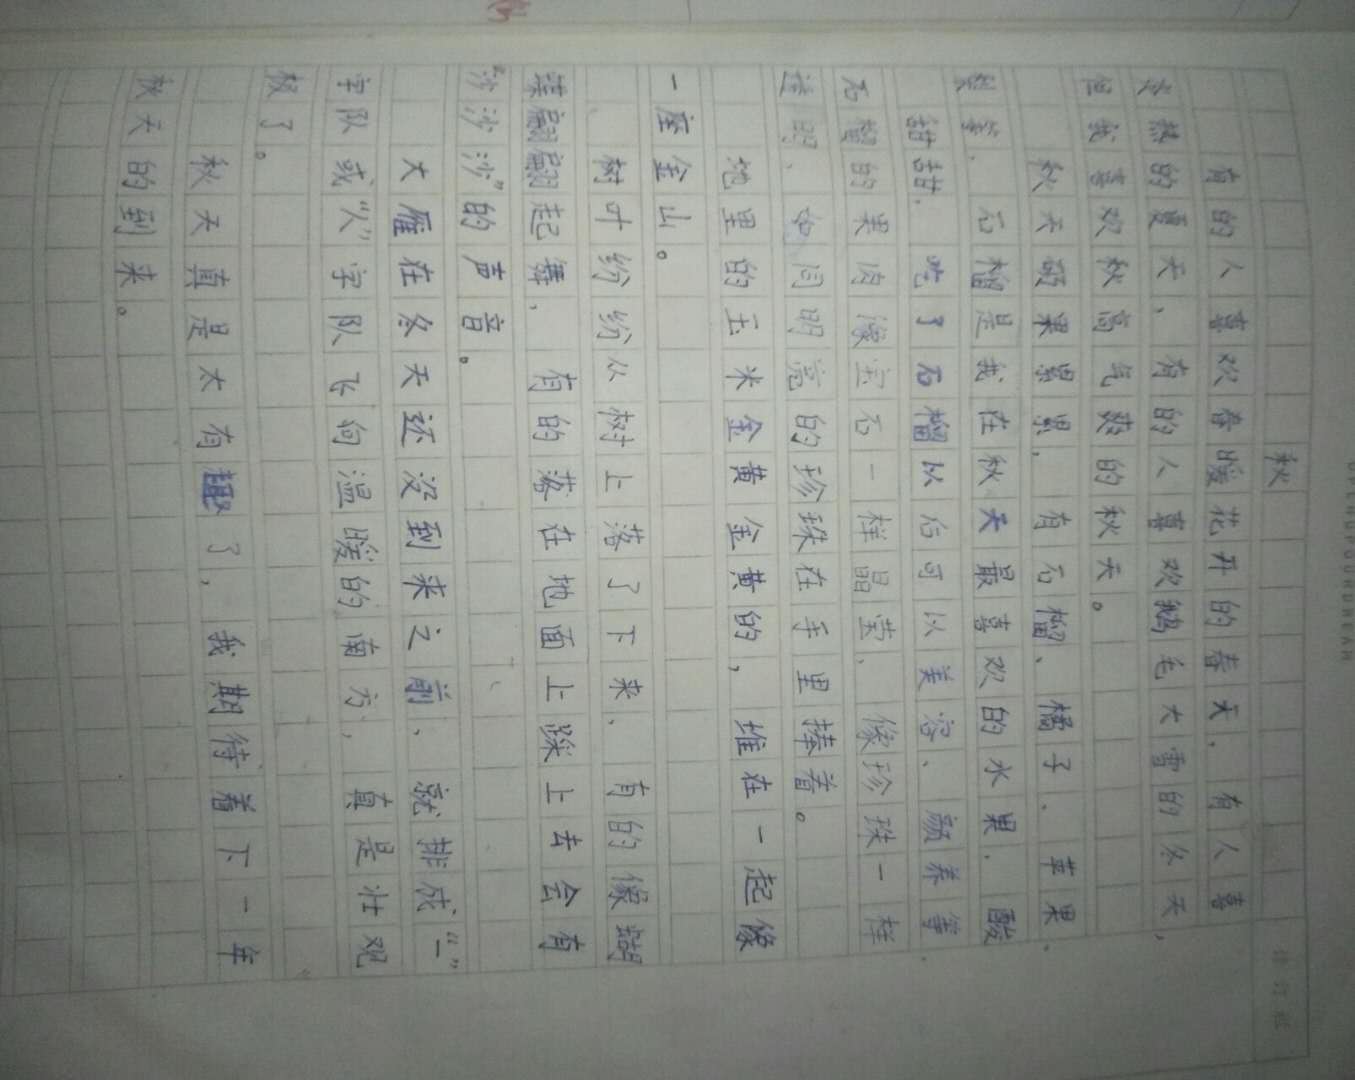 秋
有的人喜欢春暖花开的春天，有人喜
炎热的夏天，有的人喜欢鹅毛大雪的冬天，
但我喜欢秋高气爽的秋天。
秋天硕果累累，有石榴、橘子、苹果、
梨等，石榴是我在秋天最喜欢的水果，酸
甜甜，吃了石榴以后可以美容、颜养等
石榴的果肉像宝石一样晶莹、像珍珠一样
透明、如同明亮的珍珠在手里捧着。
地里的玉米金黄金黄的，堆在一起像
一座金山。
树叶纷纷从树上落了下来、有的像蝴
蝶翩翩起舞，有的落在地面上踩上去会有
“沙沙沙”的声音。
大雁在冬天还没到来之前、就排成“一”
字队或“人”字队飞向温暖的南方，真是壮观
极了。
秋天真是太有趣了，我期待着下一年
秋天的到来。